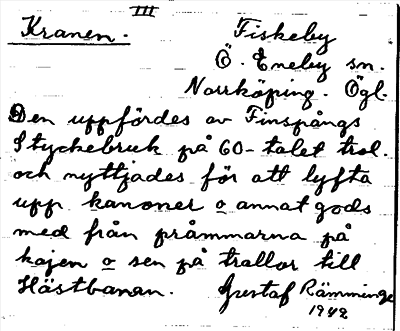 III
Kranen. Fiskeby
Ö. Eneby sn.
Norrköping. Ögl.
Den uppfördes av Finspångs
Styckebruk på 60-talet trol.
och nyttjades för att lyfta
upp kanoner o annat gods
med från pråmmarna på
kajen o sen på trallor till
Hästbanan. Gustaf Rämminge
1942